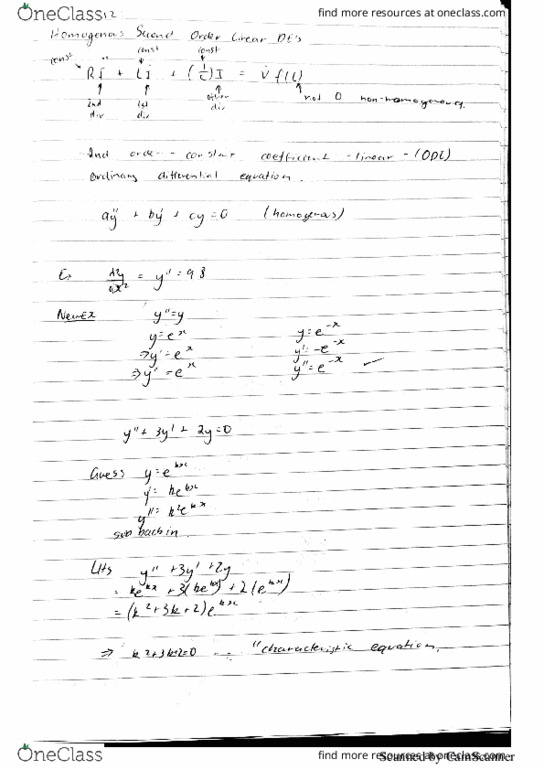 OneClass 12
find more resources at oneclass.com
Homogenous Second Order Linear DE's
const const const
RÏ + Lİ + (1/C)I = V f(t)
2nd div 1st div div not 0 non-homogenous.
2nd order - constant coefficient - linear - (ODE)
Ordinary differential equation.
aÿ + bẏ + cy = 0 (homogenous)
Ex d²y/dx² = y'' = 9.8
New Ex y'' = y
y = e^x y = e^-x
⇒ y' = e^x y' = -e^-x
⇒ y'' = e^x y'' = e^-x ✓
y'' + 3y' + 2y = 0
Guess y = e^kx
y' = ke^kx
y'' = k²e^kx
sub back in.
LHS y'' + 3y' + 2y
= ke^kx + 3(ke^kx) + 2(e^kx)
= (k² + 3k + 2)e^kx
⇒ k² + 3k + 2 = 0 ... "characteristic equation,
OneClass
find more resources at oneclass.com
Scanned by CamScanner